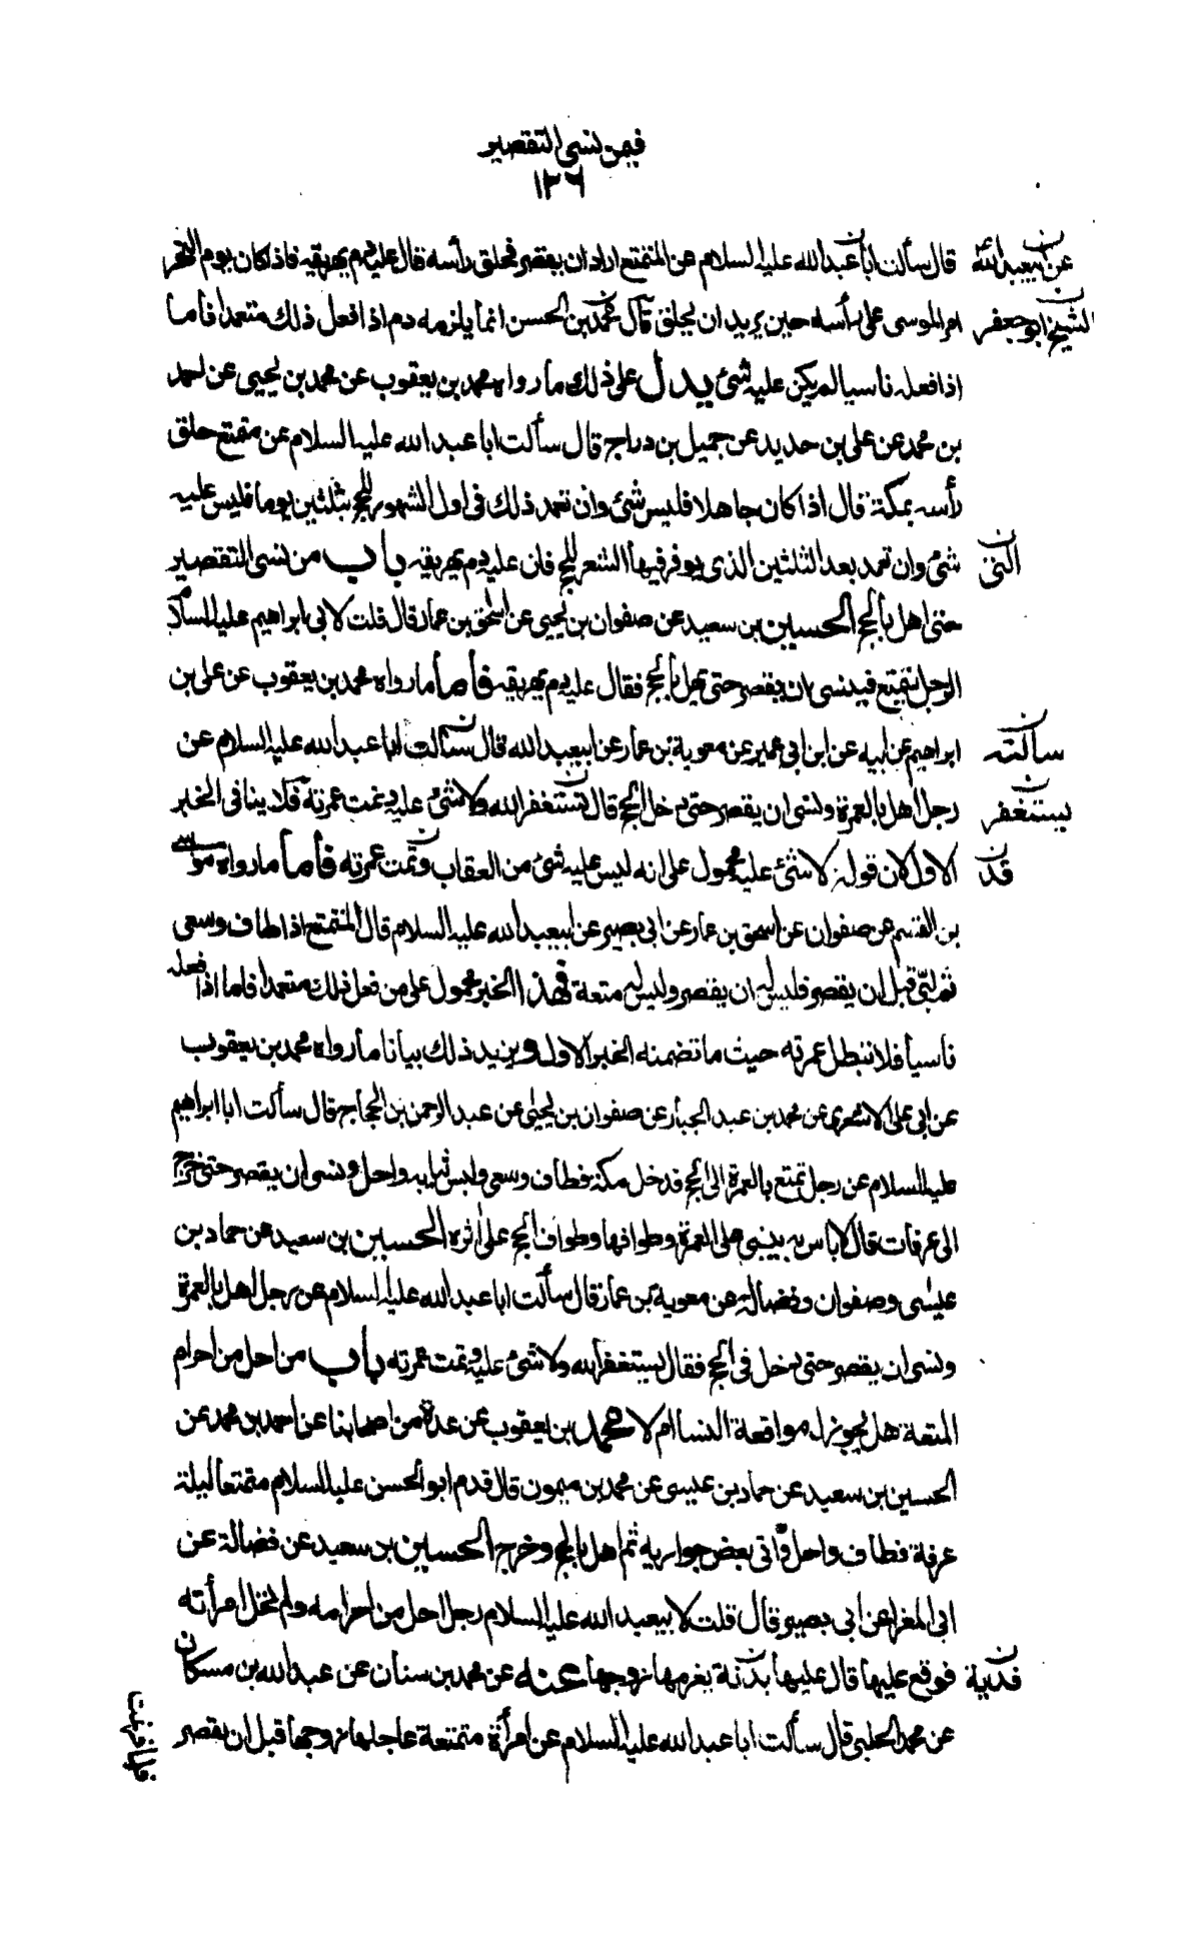 فيمن نسى التقصير
١٣٦
قال سألت ابا عبدالله عليه السلام عن المتمتع اراد ان يقصر فحلق رأسه قال عليه دم يهريقه فاذا كان يوم النحر
عن ابيعبدالله ن
امر الموسى على رأسه حين يريد ان يحلق قال محمد بن الحسن انما يلزمه دم اذا فعل ذلك متعمدا فأما
الشيخ ابو جعفر ن
اذا فعله ناسيا لم يكن عليه شئ يدل على ذلك ما رواه محمد بن يعقوب عن محمد بن يحيى عن احمد
بن محمد عن على بن حديد عن جميل بن دراج قال سألت ابا عبد الله عليه السلام عن متمتع حلق
رأسه بمكة قال اذا كان جاهلا فليس شئ وان تعمد ذلك فى اول الشهور للحج بثلثين يوما فليس عليه
شئ وان تعمد بعد الثلثين الذى يوفر فيها الشعر للحج فان عليه دم يهريقه باب من نسى التقصير
التى ن
حتى اهل بالحج الحسين بن سعيد عن صفوان بن يحيى عن اسحق بن عمار قال قلت لابى ابراهيم عليه السلام
الرجل يتمتع فينسى ان يقصر حتى يهل بالحج فقال عليه دم يهريقه فأما ما رواه محمد بن يعقوب عن على بن
ابراهيم عن ابيه عن ابن ابى عمير عن معوية بن عمار عن ابيعبد الله قال سألت ابا عبد الله عليه السلام عن
سألته ن
رجل اهل بالعمرة ونسى ان يقصر حتى دخل الحج قال تستغفر الله ولا شئ عليه وتمت عمرته فلا ينافى الخبر
يستغفر ن
الاول لان قوله لا شئ عليه محمول على انه ليس عليه شئ من العقاب وتمت عمرته فأما ما رواه موسى
قد ن
بن القسم عن صفوان عن اسحق بن عمار عن ابى بصير عن ابيعبد الله عليه السلام قال المتمتع اذا طاف وسعى
ثم لبى قبل ان يقصر فليس له ان يقصر وليس له متعة فهذا الخبر محمول على من فعل ذلك متعمدا فاما اذا فعله
ناسيا فلا تبطل عمرته حيث ما تضمنه الخبر الاول ويزيد ذلك بيانا ما رواه محمد بن يعقوب
عن ابى على الاشعرى عن محمد بن عبد الجبار عن صفوان بن يحيى عن عبد الرحمن بن الحجاج قال سألت ابا ابراهيم
عليه السلام عن رجل تمتع بالعمرة الى الحج فدخل مكة فطاف وسعى ولبس ثيابه واحل ونسى ان يقصر حتى خرج
الى عرفات قال لا باس به يبنى على العمرة وطوافها وطواف الحج على اثره الحسين بن سعيد عن حماد بن
عيسى وصفوان وفضالة عن معوية بن عمار قال سألت ابا عبد الله عليه السلام عن رجل اهل بالعمرة
ونسى ان يقصر حتى دخل فى الحج فقال يستغفر الله ولا شئ عليه وتمت عمرته باب من احل من احرام
المتعة هل يجوز له مواقعة النساء ام لا محمد بن يعقوب عن عدة من اصحابنا عن احمد بن محمد عن
الحسين بن سعيد عن حماد بن عيسى عن محمد بن ميمون قال قدم ابو الحسن عليه السلام متمتعا ليلة
عرفة فطاف واحل واتى بعض جواريه ثم اهل بالحج وخرج الحسين بن سعيد عن فضالة عن
ابى المغرا عن ابى بصير قال قلت لابيعبد الله عليه السلام رجل احل من احرامه ولم تحل امرأته
فوقع عليها قال عليها بدنة يغرمها زوجها عنه عن محمد بن سنان عن عبد الله بن مسكان
فدية ن
عن محمد الحلبى قال سألت ابا عبد الله عليه السلام عن امرأة متمتعة عاجلها زوجها قبل ان يقصر